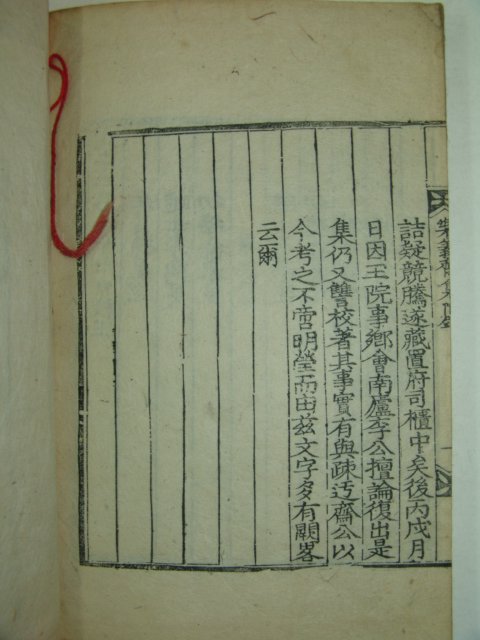 詰疑競騰遂藏置府司櫃中矣後丙戌月
日因王院事鄉會南廬李公擅論復出是
集仍又讐校著其事實有與疎迃齋公以
今考之不啻明瑩而由玆文字多有闕畧
云爾